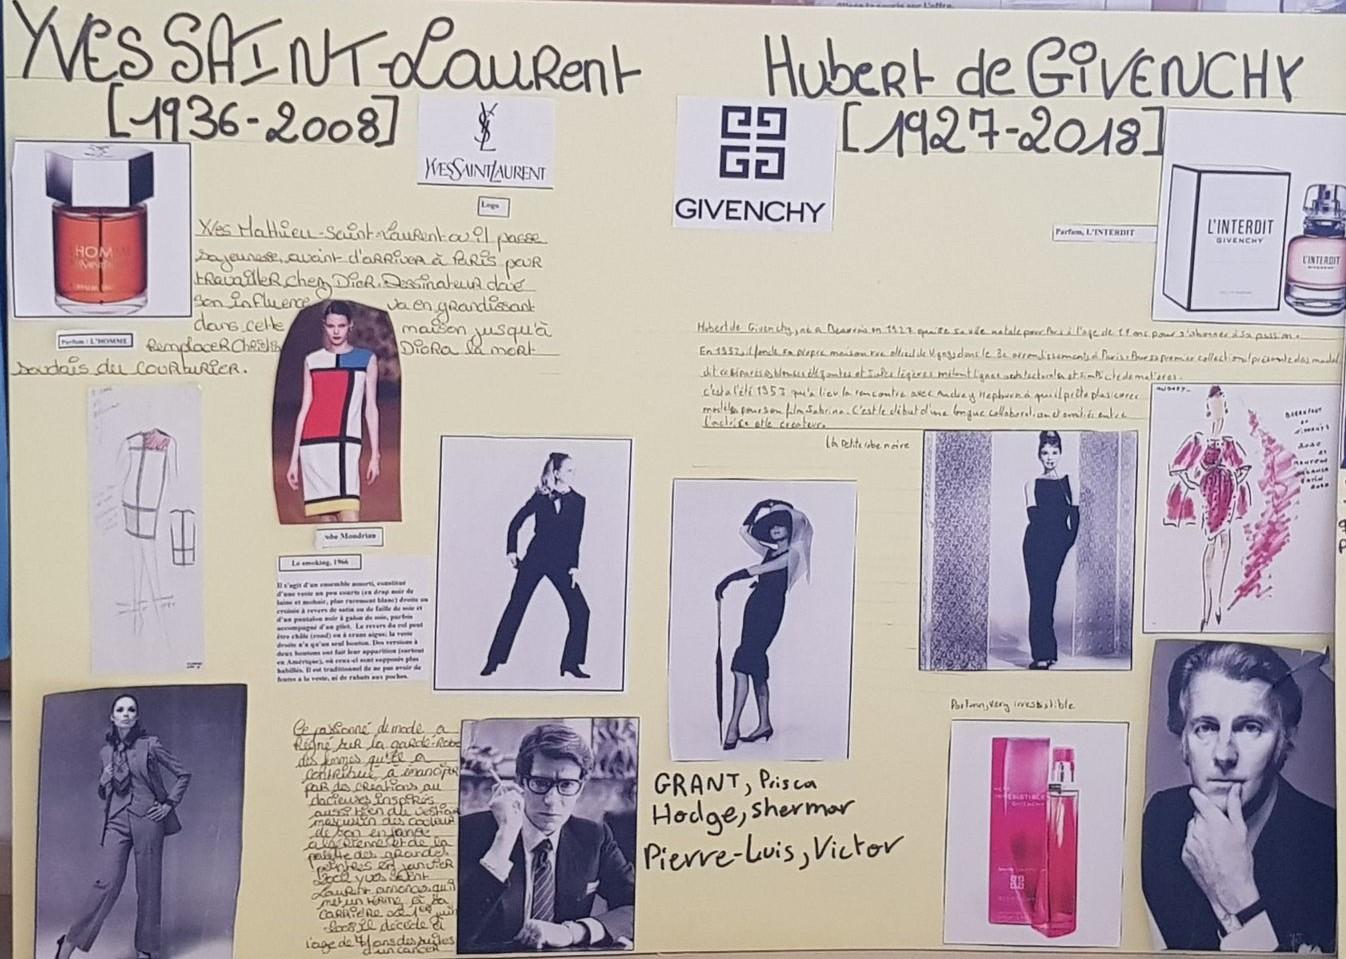 YVES SAINT-LAURENT
[1936-2008]
YSL
YVESSAINTLAURENT
Logo
Yves Mathieu-Saint-Laurent où il passe
sa jeunesse, avant d'arriver à Paris pour
travailler chez Dior. Dessinateur doué
son influence va en grandissant
dans cette maison jusqu'à
Remplacer Christian Dior à la mort
soudais du couturier.
Parfum : L'HOMME
robe Mondrian
Le smoking, 1966
Il s'agit d'un ensemble assorti, constitué
d'une veste un peu courte (en drap noir de
laine et mohair, plus rarement blanc) droite ou
croisée à revers de satin ou de faille de soie et
d'un pantalon noir à galon de soie, parfois
accompagné d'un gilet. Le revers du col peut
être châle (rond) ou à crans aigus; la veste
droite n'a qu'un seul bouton. Des versions à
deux boutons ont fait leur apparition (surtout
en Amérique), où ceux-ci sont supposés plus
habillés. Il est traditionnel de ne pas avoir de
fentes à la veste, ni de rabats aux poches.
Ce passionné de mode a
Régné sur la garde-Robe
des femmes qu'il a
contribué à émanciper
par des créations au
dacieuses inspirés
aussi bien du vestiaire
masculin des couleurs
de son enfance
algérienne et de la
palette des grandes
peintres en janvier
2002 yves Saint
Laurent annonce qu'il
met un terme à sa
CARRIÈRE
2008 il décède à
l'age de 71 ans des suites
d'un cancer
Hubert de GIVENCHY
[1927-2018]
GIVENCHY
Parfum, L'INTERDIT
L'INTERDIT
GIVENCHY
L'INTERDIT
Hubert de Givenchy, né à Beauvais en 1927 quitte sa ville natale pour Paris à l'age de 17 ans pour s'abonner à sa passion.
En 1952, il fonde sa propre maison rue Alfred de Vigny dans le 8e arrondissement à Paris. Pour sa premier collection il présente des
et jupes légères mêlant lignes architecturales et simplicité de matières.
c'est à l'été 1953 qu'a lieu la rencontre avec Audrey Hepburn à qui il prête plusieurs
modèles pour son film Sabrina. C'est le début d'une longue collaboration et amitié entre
l'actrice et le créateur.
La Petite robe noire
Parfum, very irresistible
GRANT, Prisca
Hodge, shermar
Pierre-Luis, Victor